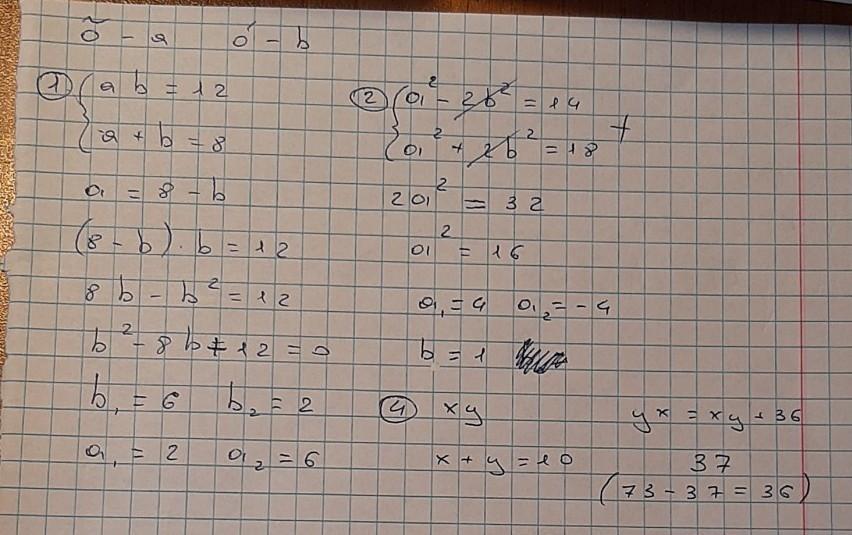 õ - a ó - b
① { a b = 12
a + b = 8
a = 8 - b
(8 - b) · b = 12
8 b - b² = 12
b² - 8 b + 12 = 0
b₁ = 6 b₂ = 2
a₁ = 2 a₂ = 6
② { a² - 2b² = 14
a² + 2b² = 18 +
2a² = 32
a² = 16
a₁ = 4 a₂ = -4
b = 1
④ xy yx = xy + 36
x + y = 10 37
(73 - 37 = 36)